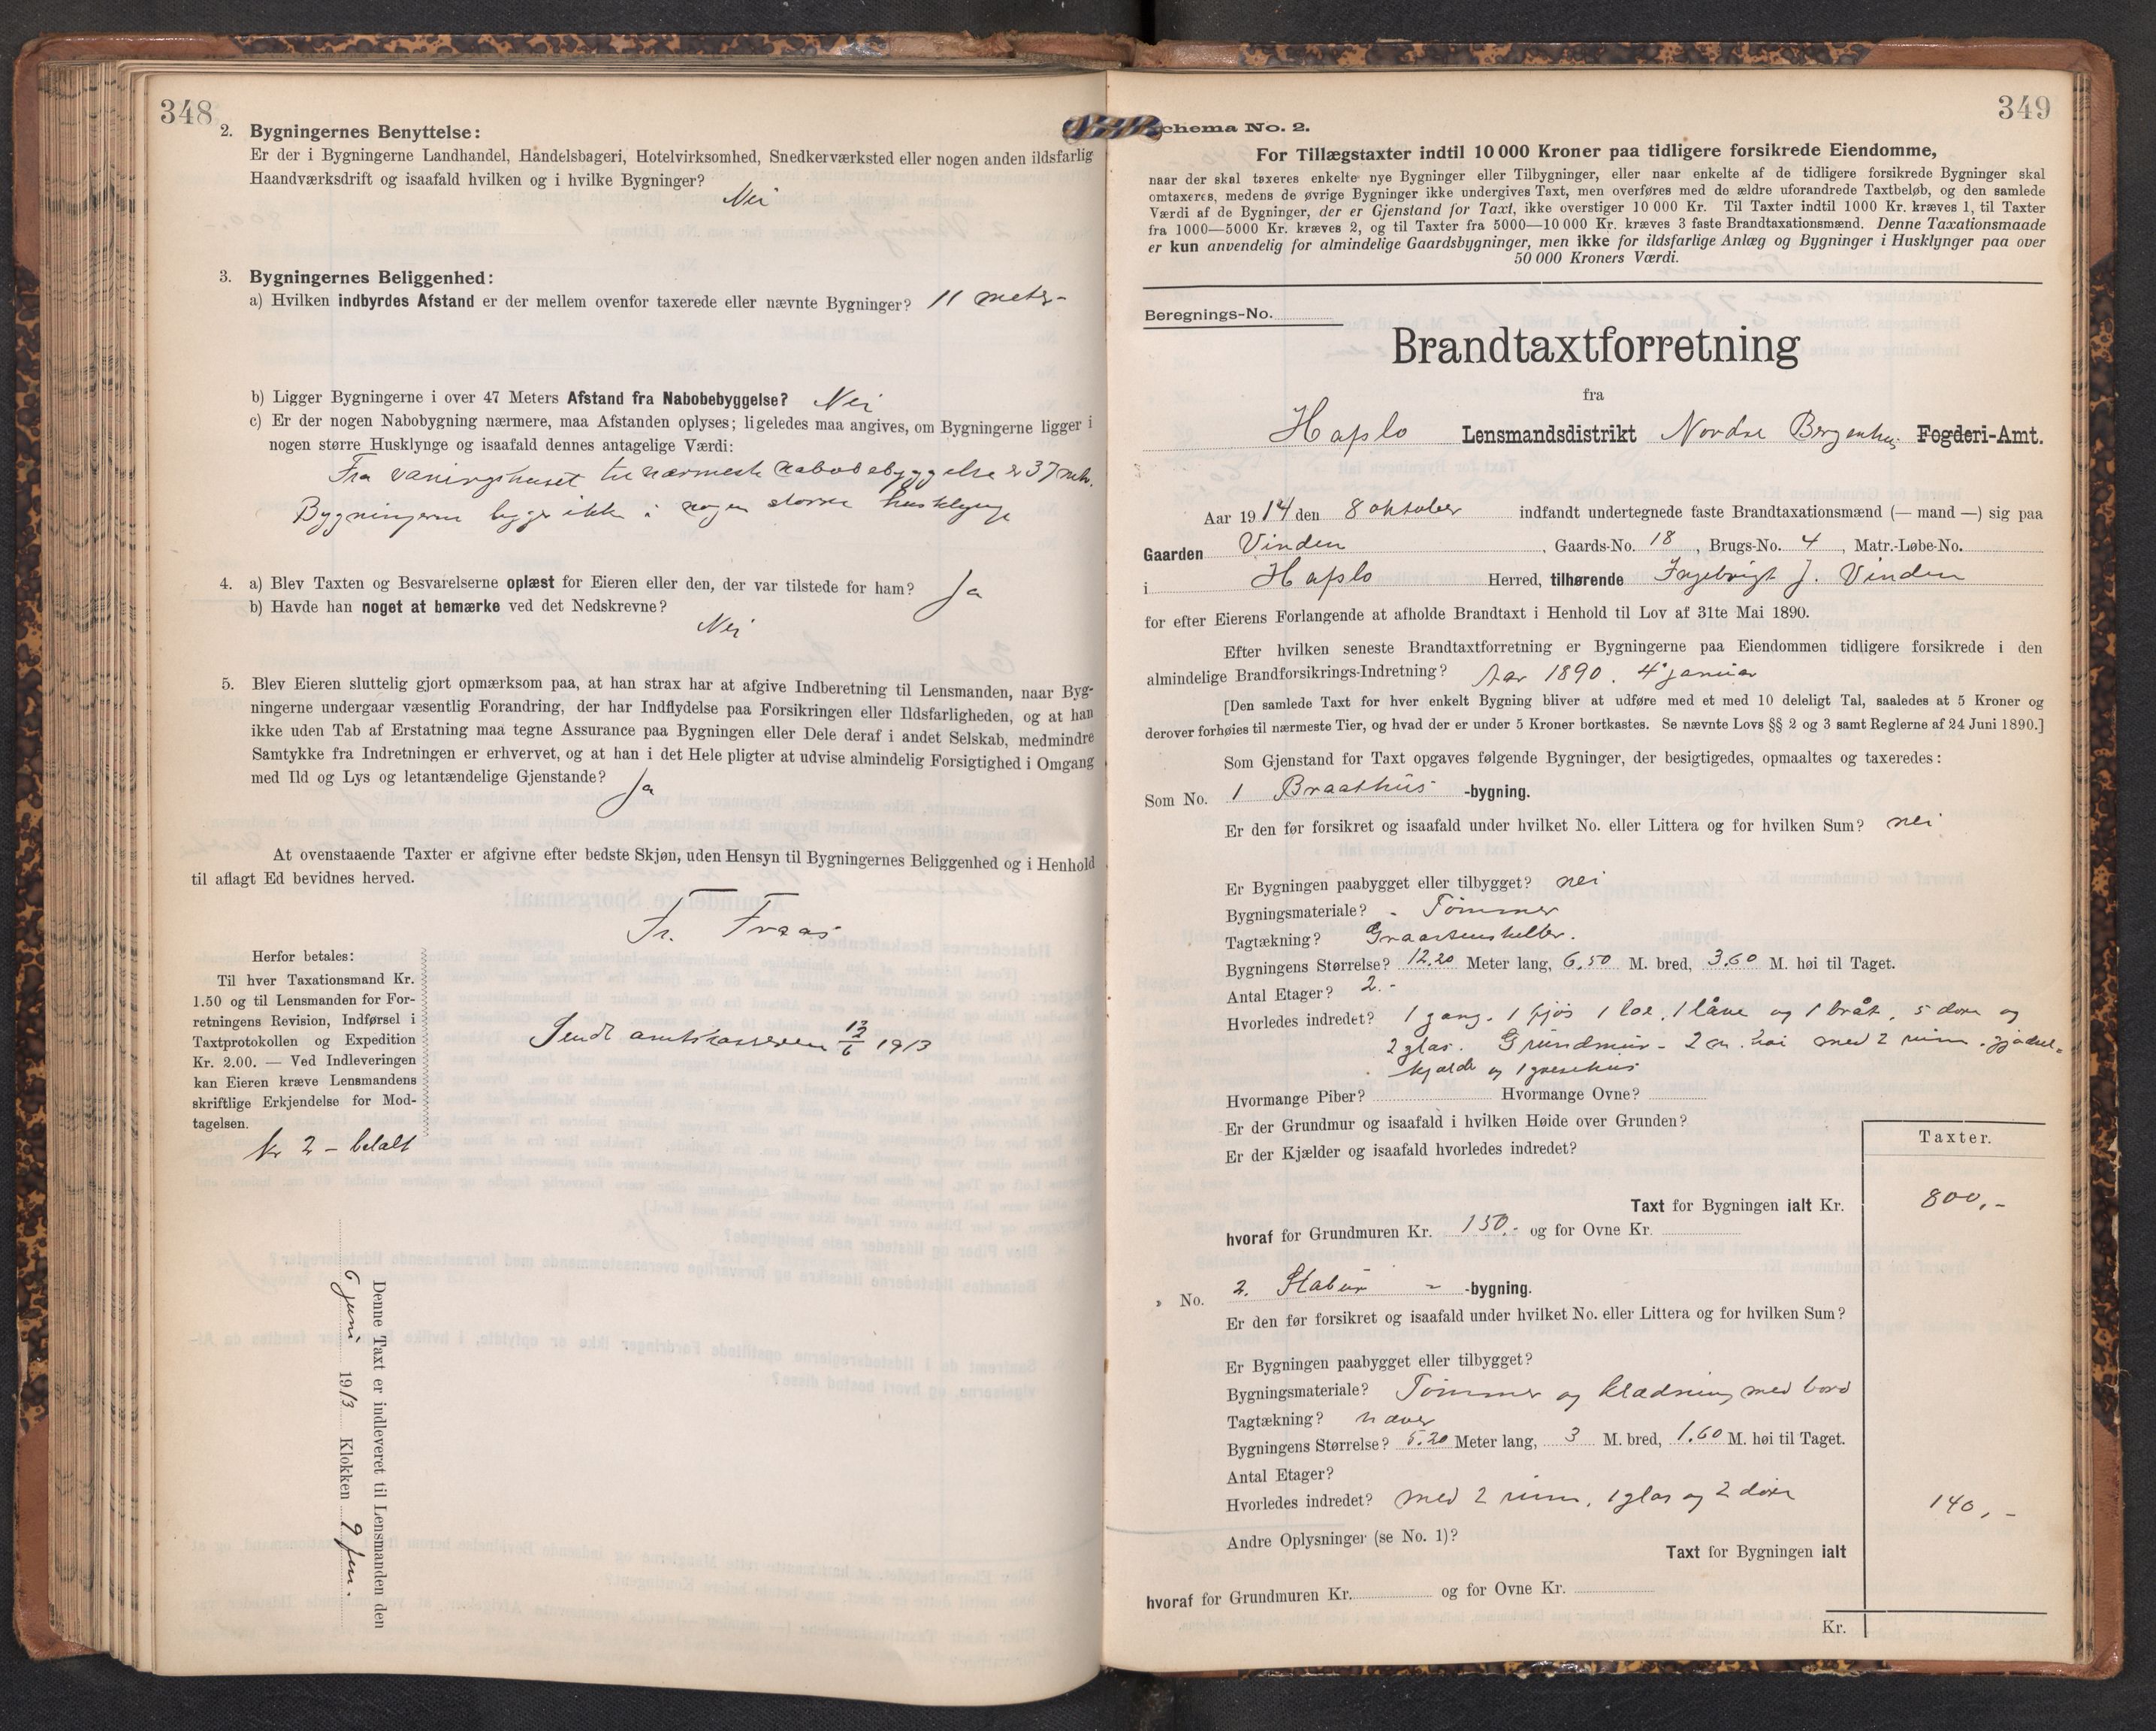 348
2. Bygningernes Benyttelse:
Er der i Bygningerne Landhandel, Handelsbageri, Hotelvirksomhed, Snedkerværksted eller nogen anden ildsfarlig
Haandværksdrift og isaafald hvilken og i hvilke Bygninger?
Nei
3. Bygningernes Beliggenhed:
a) Hvilken indbyrdes Afstand er der mellem ovenfor taxerede eller nævnte Bygninger? 11 meter-
b) Ligger Bygningerne i over 47 Meters Afstand fra Nabobebyggelse? Nei
c) Er der nogen Nabobygning nærmere, maa Afstanden oplyses; ligeledes maa angives, om Bygningerne ligger i
nogen større Husklynge og isaafald dennes antagelige Værdi:
Fra vaningshuset til nærmeste nabobebyggelse er 37 metr.
Bygningerne ligger ikke i nogen større husklynge
4. a) Blev Taxten og Besvarelserne oplæst for Eieren eller den, der var tilstede for ham? Ja
b) Havde han noget at bemærke ved det Nedskrevne?
Nei
5. Blev Eieren sluttelig gjort opmærksom paa, at han strax har at afgive Indberetning til Lensmanden, naar Byg-
ningerne undergaar væsentlig Forandring, der har Indflydelse paa Forsikringen eller Ildsfarligheden, og at han
ikke uden Tab af Erstatning maa tegne Assurance paa Bygningen eller Dele deraf i andet Selskab, medmindre
Samtykke fra Indretningen er erhvervet, og at han i det Hele pligter at udvise almindelig Forsigtighed i Omgang
med Ild og Lys og letantændelige Gjenstande? Ja
At ovenstaaende Taxter er afgivne efter bedste Skjøn, uden Hensyn til Bygningernes Beliggenhed og i Henhold
til aflagt Ed bevidnes herved.
Fr. Fraas
Herfor betales:
Til hver Taxationsmand Kr.
1.50 og til Lensmanden for For-
retningens Revision, Indførsel i
Taxtprotokollen og Expedition
Kr. 2.00. — Ved Indleveringen
kan Eieren kræve Lensmandens
skriftlige Erkjendelse for Mod-
tagelsen.
Sendt amtskassereren 12/6 1913
kr 2 - betalt
Denne Taxt er indleveret til Lensmanden den
6 juni 1913 Klokken 9 fm.
349
Schema No. 2.
For Tillægstaxter indtil 10 000 Kroner paa tidligere forsikrede Eiendomme,
naar der skal taxeres enkelte nye Bygninger eller Tilbygninger, eller naar enkelte af de tidligere forsikrede Bygninger skal
omtaxeres, medens de øvrige Bygninger ikke undergives Taxt, men overføres med de ældre uforandrede Taxtbeløb, og den samlede
Værdi af de Bygninger, der er Gjenstand for Taxt, ikke overstiger 10 000 Kr. Til Taxter indtil 1000 Kr. kræves 1, til Taxter
fra 1000—5000 Kr. kræves 2, og til Taxter fra 5000—10 000 Kr. kræves 3 faste Brandtaxationsmænd. Denne Taxationsmaade
er kun anvendelig for almindelige Gaardsbygninger, men ikke for ildsfarlige Anlæg og Bygninger i Husklynger paa over
50 000 Kroners Værdi.
Beregnings-No.
Brandtaxtforretning
fra
Hafslo Lensmandsdistrikt Nordre Bergenhus Fogderi-Amt.
Aar 1914 den 8 oktober indfandt undertegnede faste Brandtaxationsmænd (— mand —) sig paa
Gaarden Vinden, Gaards-No. 18, Brugs-No. 4, Matr.-Løbe-No.
i Hafslo Herred, tilhørende Ingebrigt J. Vinden
for efter Eierens Forlangende at afholde Brandtaxt i Henhold til Lov af 31te Mai 1890.
Efter hvilken seneste Brandtaxtforretning er Bygningerne paa Eiendommen tidligere forsikrede i den
almindelige Brandforsikrings-Indretning? Aar 1890. 4 januar
[Den samlede Taxt for hver enkelt Bygning bliver at udføre med et med 10 deleligt Tal, saaledes at 5 Kroner og
derover forhøies til nærmeste Tier, og hvad der er under 5 Kroner bortkastes. Se nævnte Lovs §§ 2 og 3 samt Reglerne af 24 Juni 1890.]
Som Gjenstand for Taxt opgaves følgende Bygninger, der besigtigedes, opmaaltes og taxeredes:
Som No. 1 Braathus -bygning.
Er den før forsikret og isaafald under hvilket No. eller Littera og for hvilken Sum? nei
Er Bygningen paabygget eller tilbygget? nei
Bygningsmateriale? - Tømmer
Tagtækning? Graastensheller.
Bygningens Størrelse? 12.20 Meter lang, 6,50 M. bred, 3,60 M. høi til Taget.
Antal Etager? 2.-
Hvorledes indredet? 1 gang. 1 fjøs 1 loe, 1 låve og 1 bråt, 5 døre og
2 glas. Grundmur - 2 m. høi med 2 rum. gjødsel-
kjælder og 1 grisehus
Hvormange Piber? Hvormange Ovne?
Er der Grundmur og isaafald i hvilken Høide over Grunden?
Er der Kjælder og isaafald hvorledes indredet?
Taxter.
Taxt for Bygningen ialt Kr. 800,-
hvoraf for Grundmuren Kr. 150.- og for Ovne Kr.
" No. 2. Stabur - -bygning.
Er den før forsikret og isaafald under hvilket No. eller Littera og for hvilken Sum?
Er Bygningen paabygget eller tilbygget?
Bygningsmateriale? Tømmer og klædning med bord
Tagtækning? næver
Bygningens Størrelse? 5.20 Meter lang, 3 M. bred, 1.60 M. høi til Taget.
Antal Etager?
Hvorledes indredet? med 2 rum, 1 glas og 2 døre
140,-
Andre Oplysninger (se No. 1)?
Taxt for Bygningen ialt
hvoraf for Grundmuren Kr. og for Ovne Kr.
Kr.